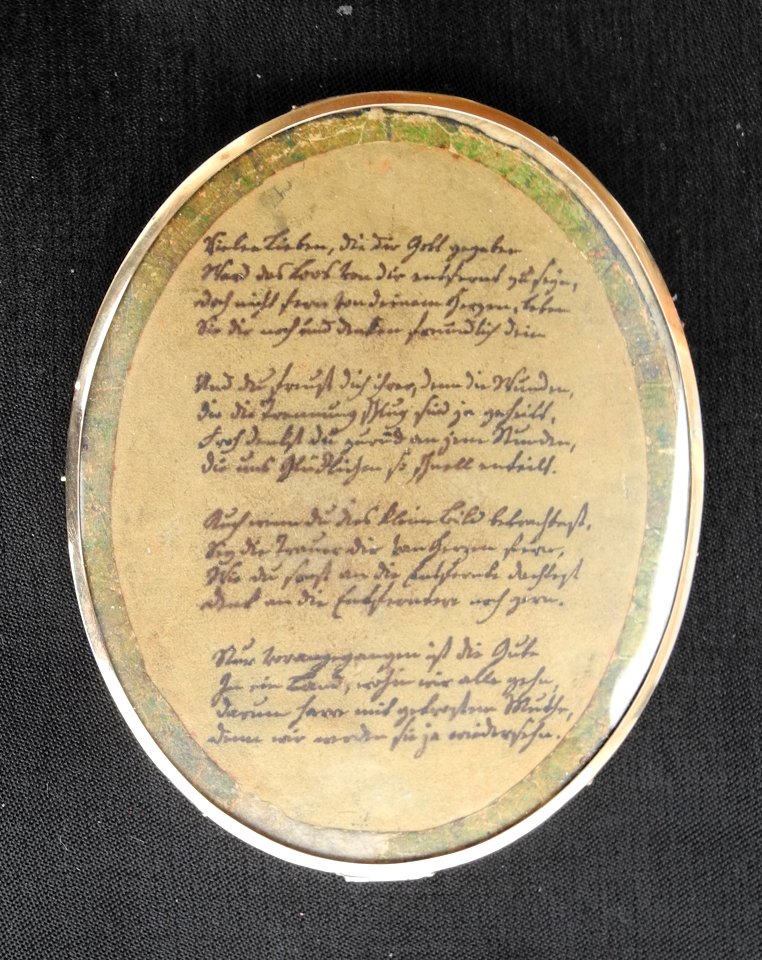 Vielen Lieben, die dir Gott gegeben
Ward das Loos von dir entfernt zu seyn,
doch nicht fern von deinem Herzen, leben
Sie dir noch und denken freundlich dein
Und du freust dich ihrer, denn die Wunden,
die die Trennung schlug sind ja geheilt,
Froh denkst du zurück an jene Stunden,
die uns Glücklichen so schnell enteilt.
Auch wenn du dies kleine Bild betrachtest,
Sey die Trauer dir von Herzen fern,
Wie du sonst an die Entfernte dachtest
denk an die Entferntere noch gern.
Nur vorangegangen ist die Gute
In ein Land, wohin wir alle gehn,
darum harre mit getrostem Muthe,
denn wir werden sie ja wiedersehn.